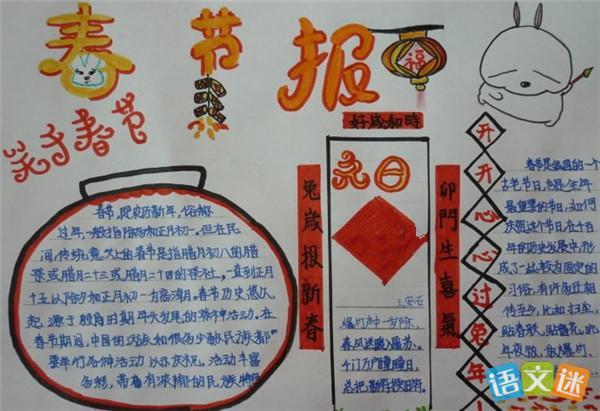 春节报
福
关于春节
春节,即农历新年,俗称
过年,一般指除夕和正月初一。但在民
间传统意义上的春节是指腊月初八的腊
祭或腊月二十三或腊月二十四的祭灶。一直到正月
十五以除夕和正月初一为高潮。春节历史悠久
起源于殷商时期年头岁尾的祭神活动。在
春节期间,中国的汉族和很多少数民族都
要举行各种活动以示庆祝。活动丰富
多彩,带有浓郁的民族特
好歲和時
兔歲报新春
卯門生喜氣
元日
王安石
爆竹声中一岁除,
春风送暖入屠苏。
千门万户曈曈日,
总把新符换旧符。
开开心心过兔年
春节是我国的一个
古老节日,也是全年
最重要的节日,如何
庆祝这个节日在千百
年的历史发展中,形
成了一些较为固定的
习俗,有许多还相
传至今,比如扫尘,
贴春联,贴窗花,吃
年夜饭,放爆竹,
语文迷